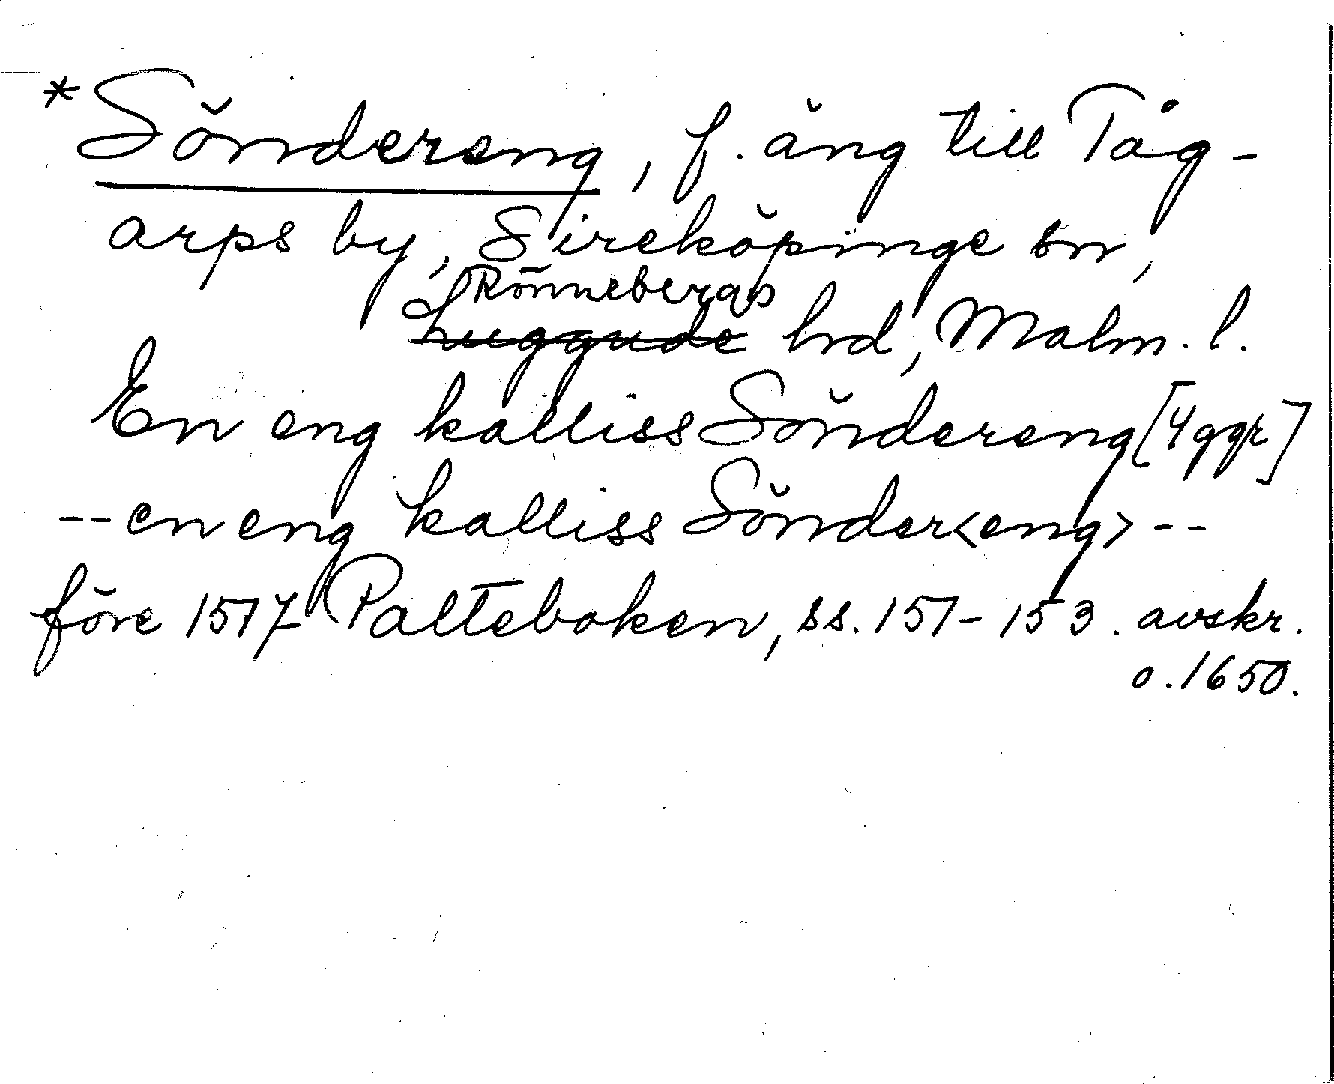 *Söndereng, f. äng till Tåg-
arps by, Sireköpinge sn,
Rönnebergs
Luggude hd, Malm. l.
En eng kalliss Söndereng [4 ggr]
-- en eng kalliss Sönder<eng> --
före 1517 Palteboken, ss. 151-153. avskr.
o. 1650.